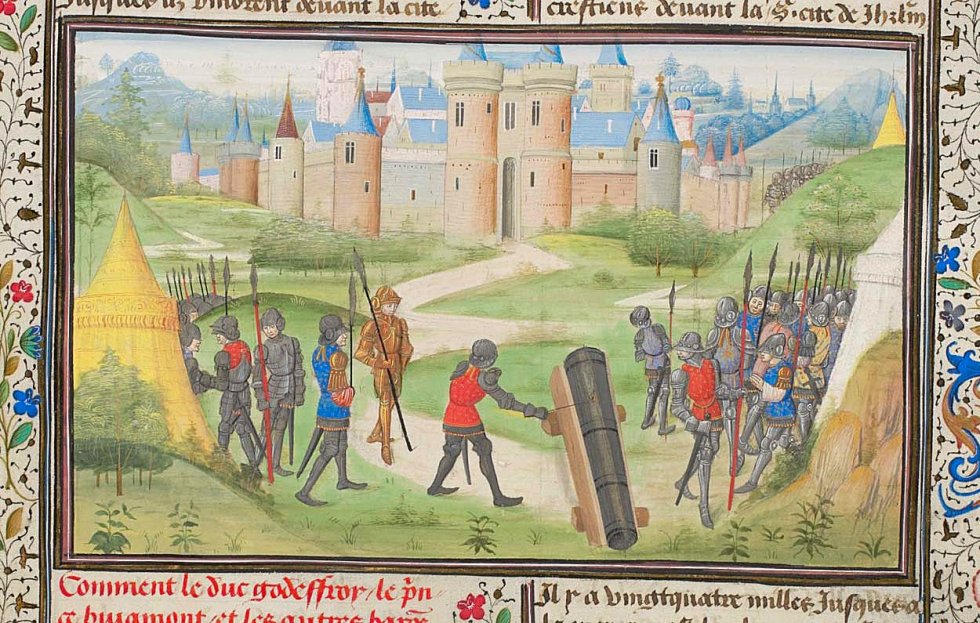 Jusques ilz vindrent deuant la cite
crestiens deuant la s. cite de Jhrlm
Comment le duc godeffroy / le pn
ce buiamont / et les autres baro
Il y a vingtquatre milles Jusques a